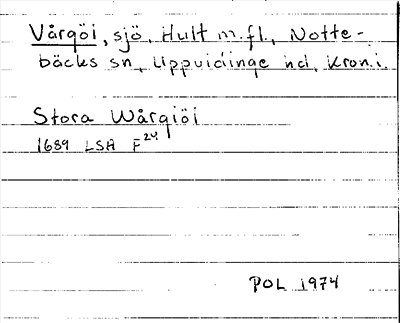 Vårgöi, sjö, Hult m.fl., Notte-
bäcks sn, Uppvidinge hd, Kron.l.
Stora Wårgiöi
1689 LSA F24
POL 1974